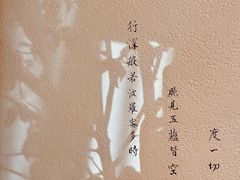 行深般若波羅蜜多時
照見五蘊皆空
度一切